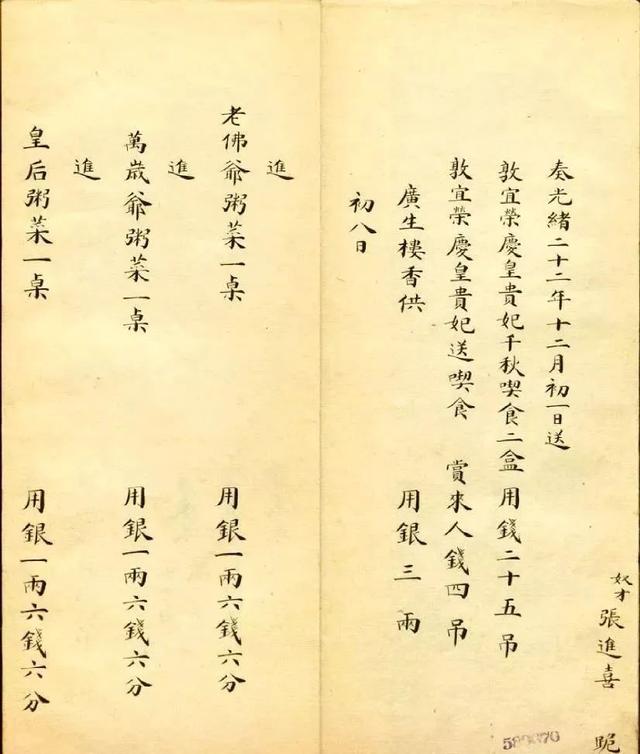 奴才張進喜
跪
奏光緒二十二年十二月初一日送
敦宜榮慶皇貴妃千秋喫食二盒用錢二十五吊
敦宜榮慶皇貴妃送喫食 賞來人錢四吊
廣生樓香供 用銀三兩
初八日
進
老佛爺粥菜一桌 用銀一兩六錢六分
進
萬歲爺粥菜一桌 用銀一兩六錢六分
進
皇后粥菜一桌 用銀一兩六錢六分